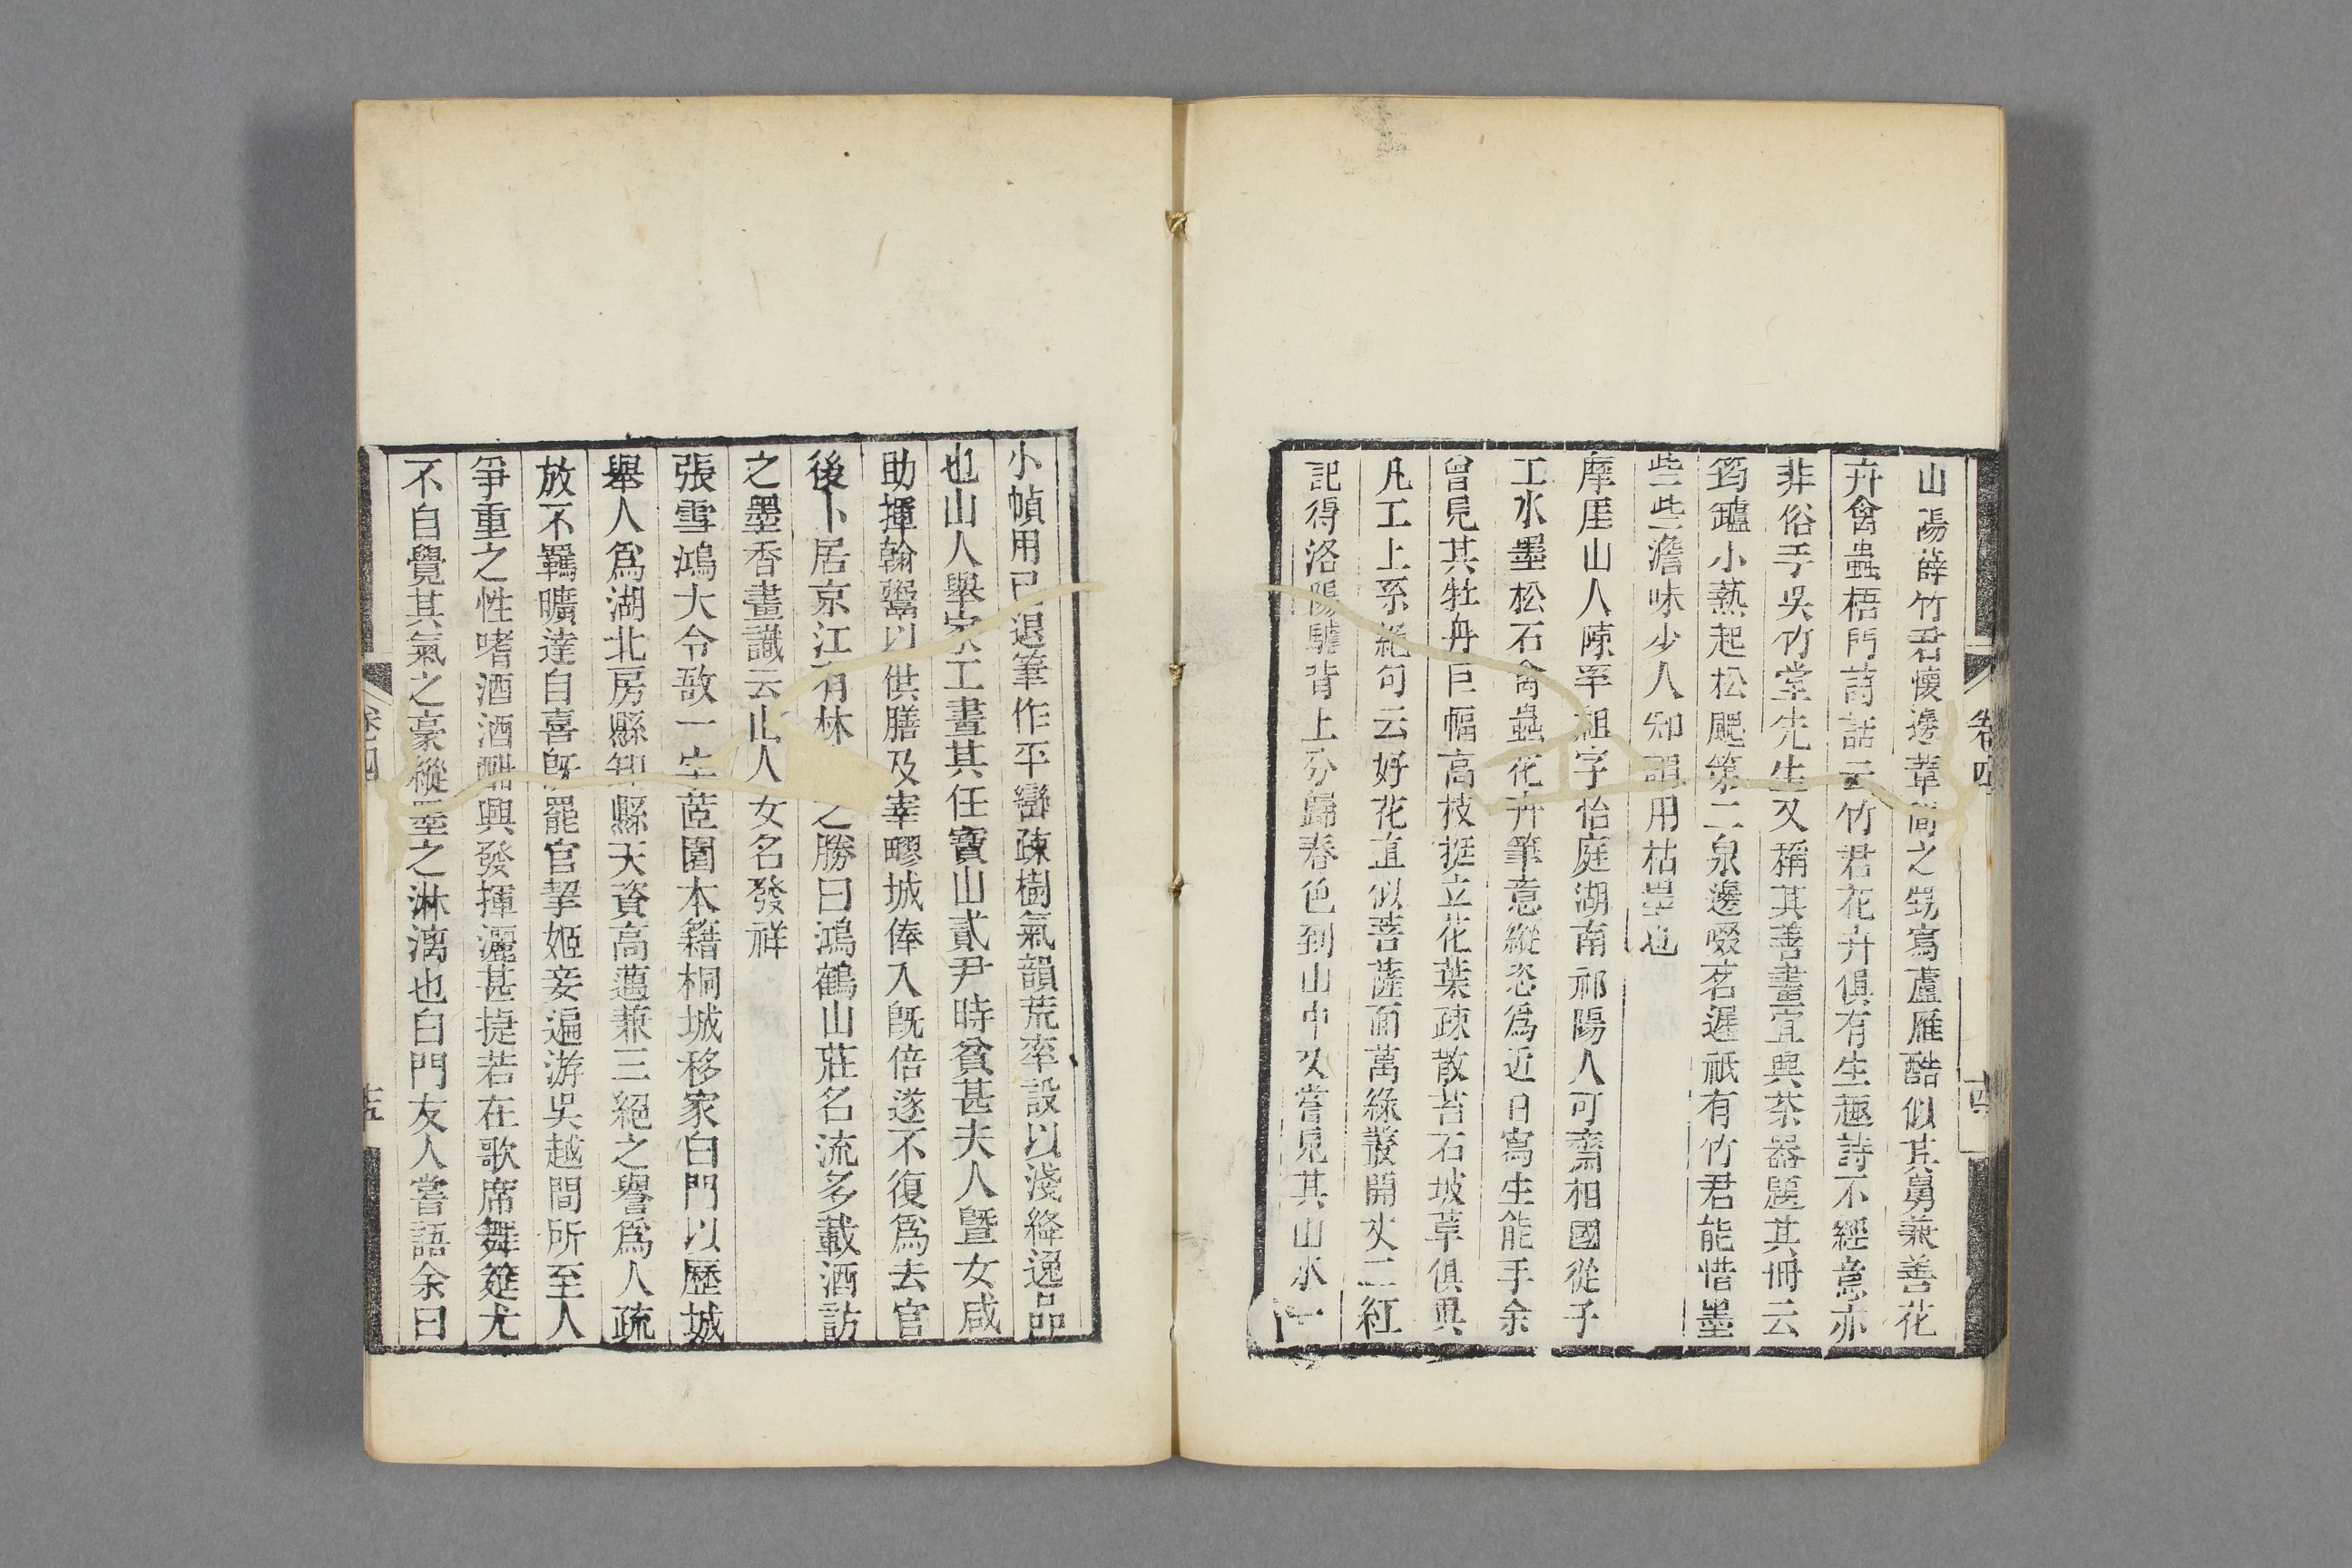 山陽薛竹君懷邊葦間之甥寫蘆雁酷似其舅兼善花
卉禽蟲梧門詩話云竹君花卉俱有生趣詩不經意亦
非俗手吳竹堂先生又稱其善畫宜興茶器題其冊云
筠鑪小熱起松颸第二泉邊啜茗遲祇有竹君能惜墨
些些澹味少人知謂用枯墨也
摩厓山人陳 祖字怡庭湖南祁陽人可齋相國從子
工水墨松石禽蟲花卉筆意縱恣爲近日寫生能手余
曾見其牡丹巨幅高枝挺立花葉疎散苔石坡草俱異
凡工上系絕句云好花直似菩薩面萬綠叢開丈二紅
記得洛陽驢背上分歸春色到山中又嘗見其山水一
卷四
小幀用已退筆作平巒疎樹氣韻荒率設以淺絳逸品
也山人舉家工畫其任寶山貳尹時貧甚夫人暨女咸
助揮翰鬻以供膳及宰 城俸入旣倍遂不復爲去官
後卜居京江有林 之勝曰鴻鶴山莊名流多載酒訪
之墨香畫識云山人女名發祥
張雪鴻大令敔一字茝園本籍桐城移家白門以歷城
舉人爲湖北房縣知縣天資高邁兼三絕之譽爲人疏
放不羈曠達自喜旣罷官挈姬妾遍游吳越間所至人
爭重之性嗜酒酒酣興發揮灑甚捷若在歌席舞筵尤
不自覺其氣之豪縱墨之淋漓也白門友人嘗語余曰
卷四